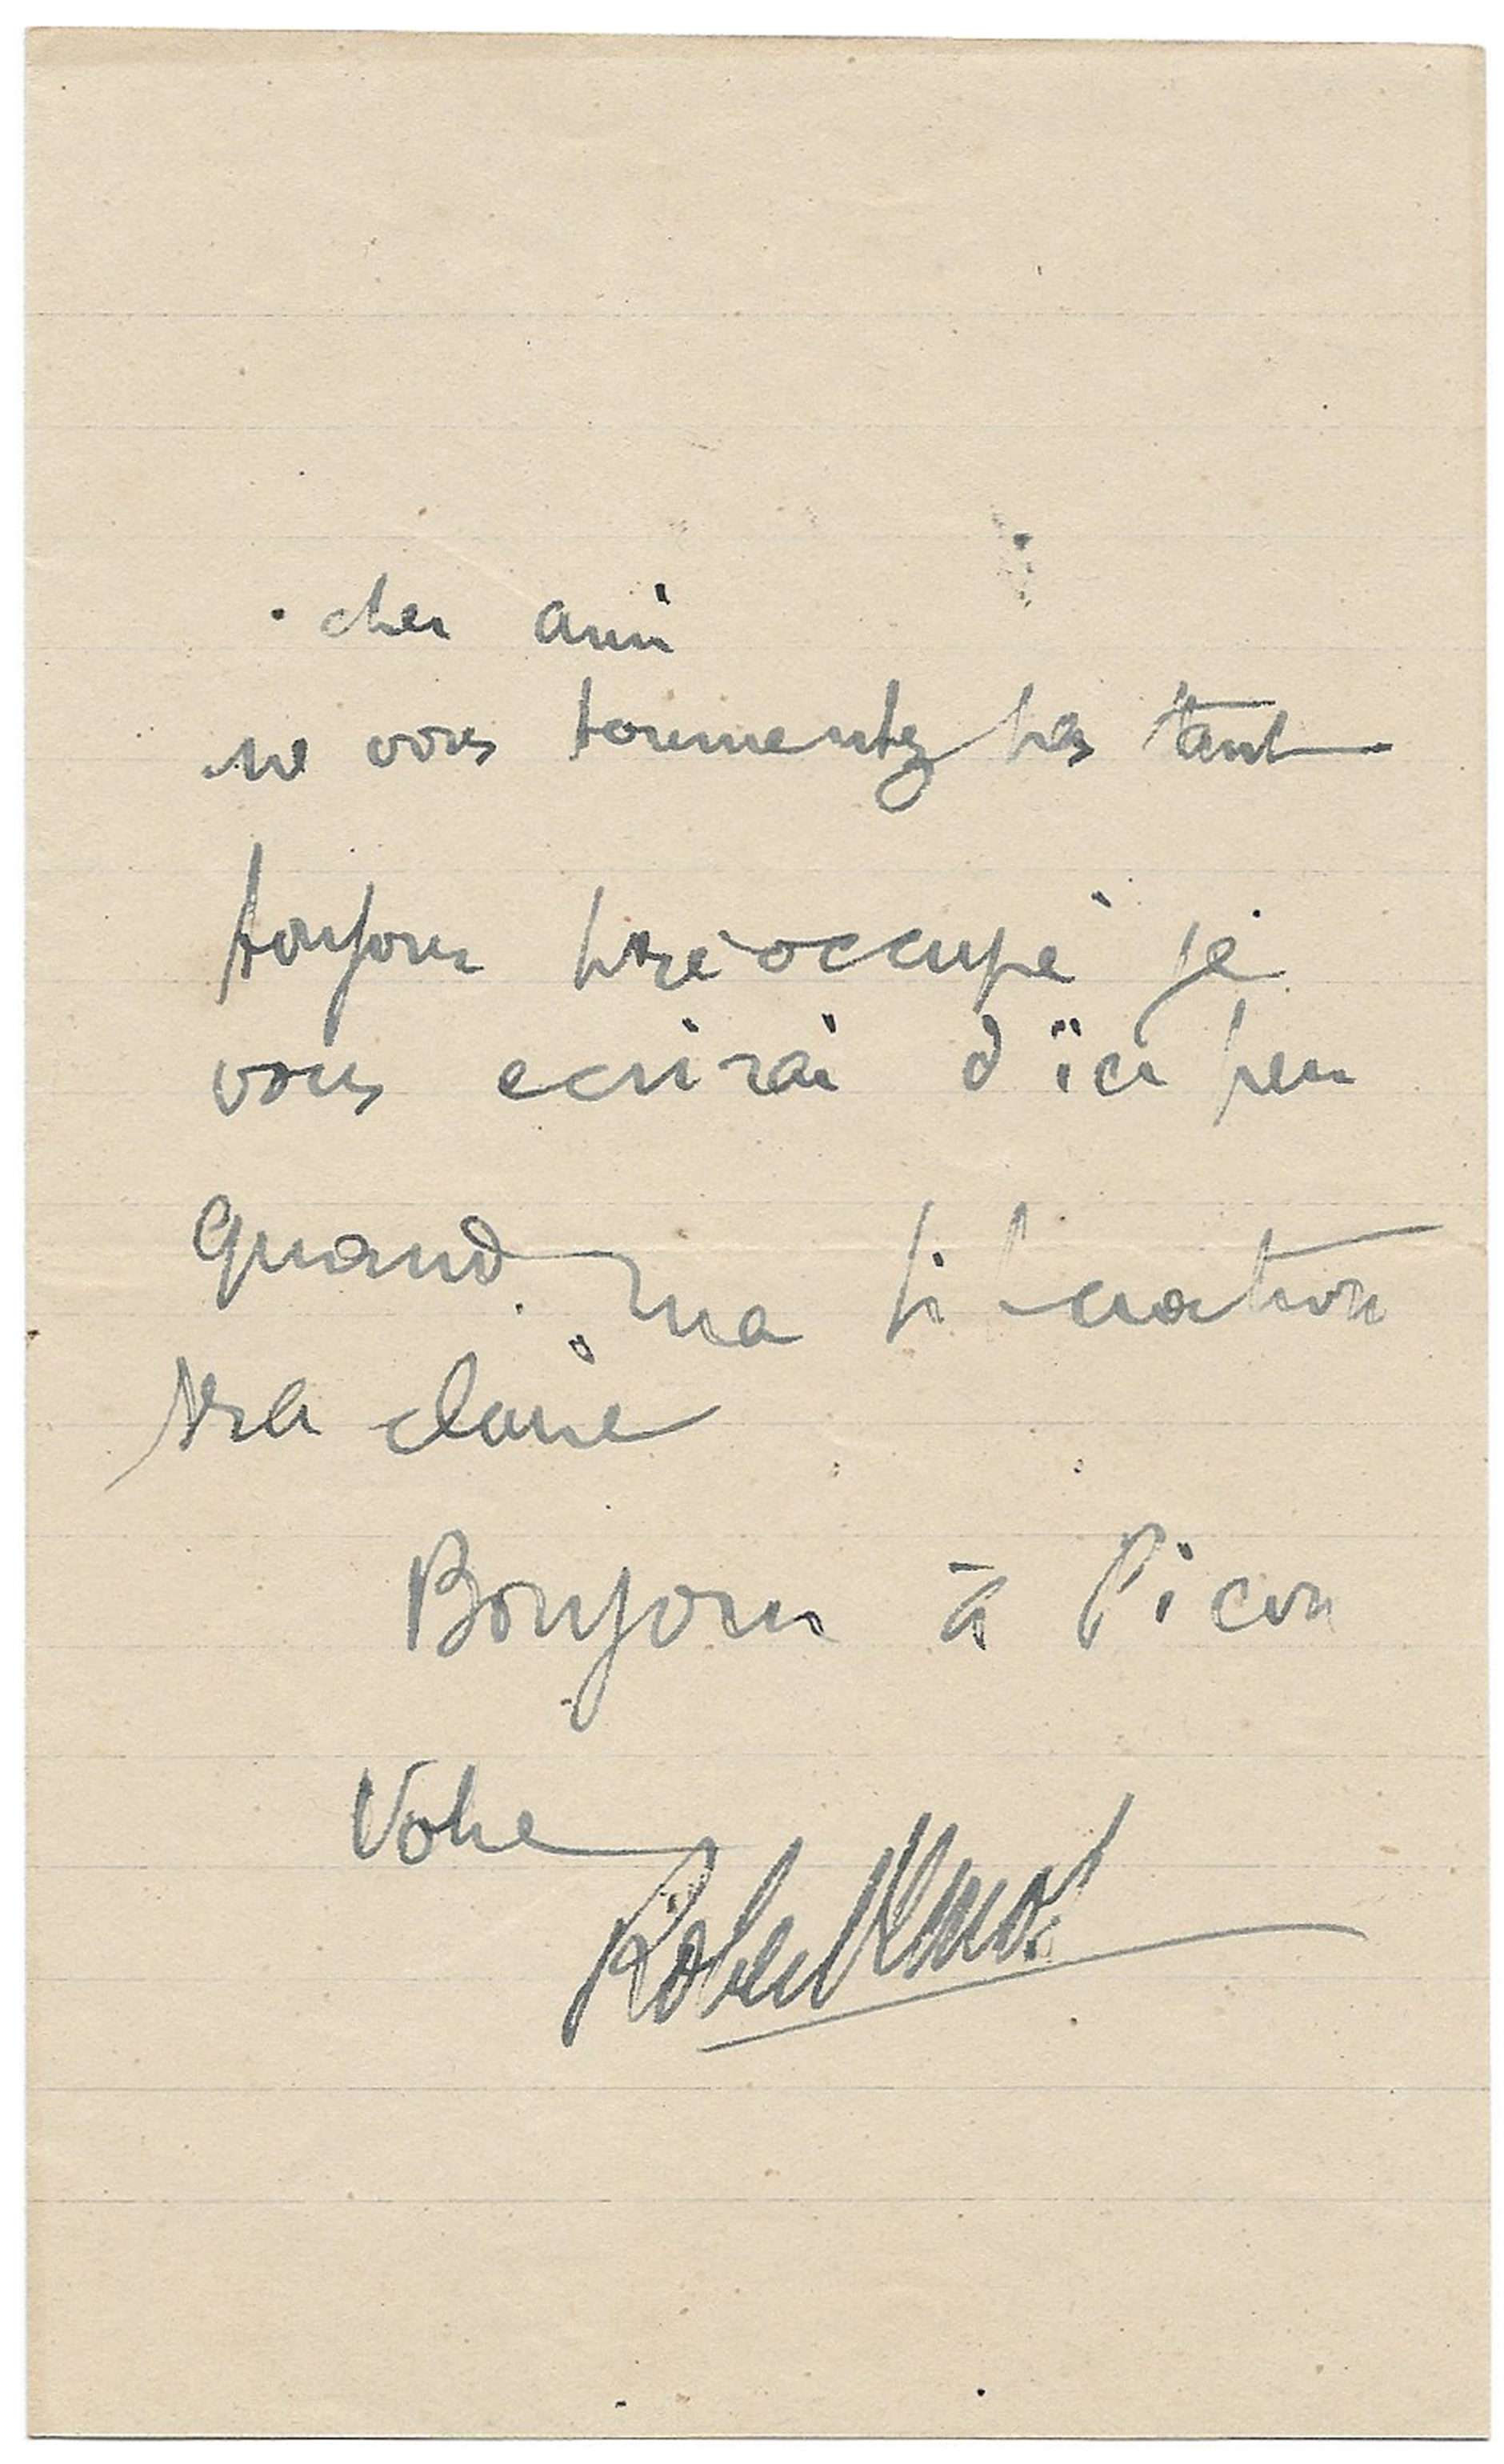 cher ami
ne vous tourmentez pas tant
toujours préoccupé je
vous ecrirai d'ici peu
Quand ma situation
sera claire
Bonjour à Picon
Votre
Robert